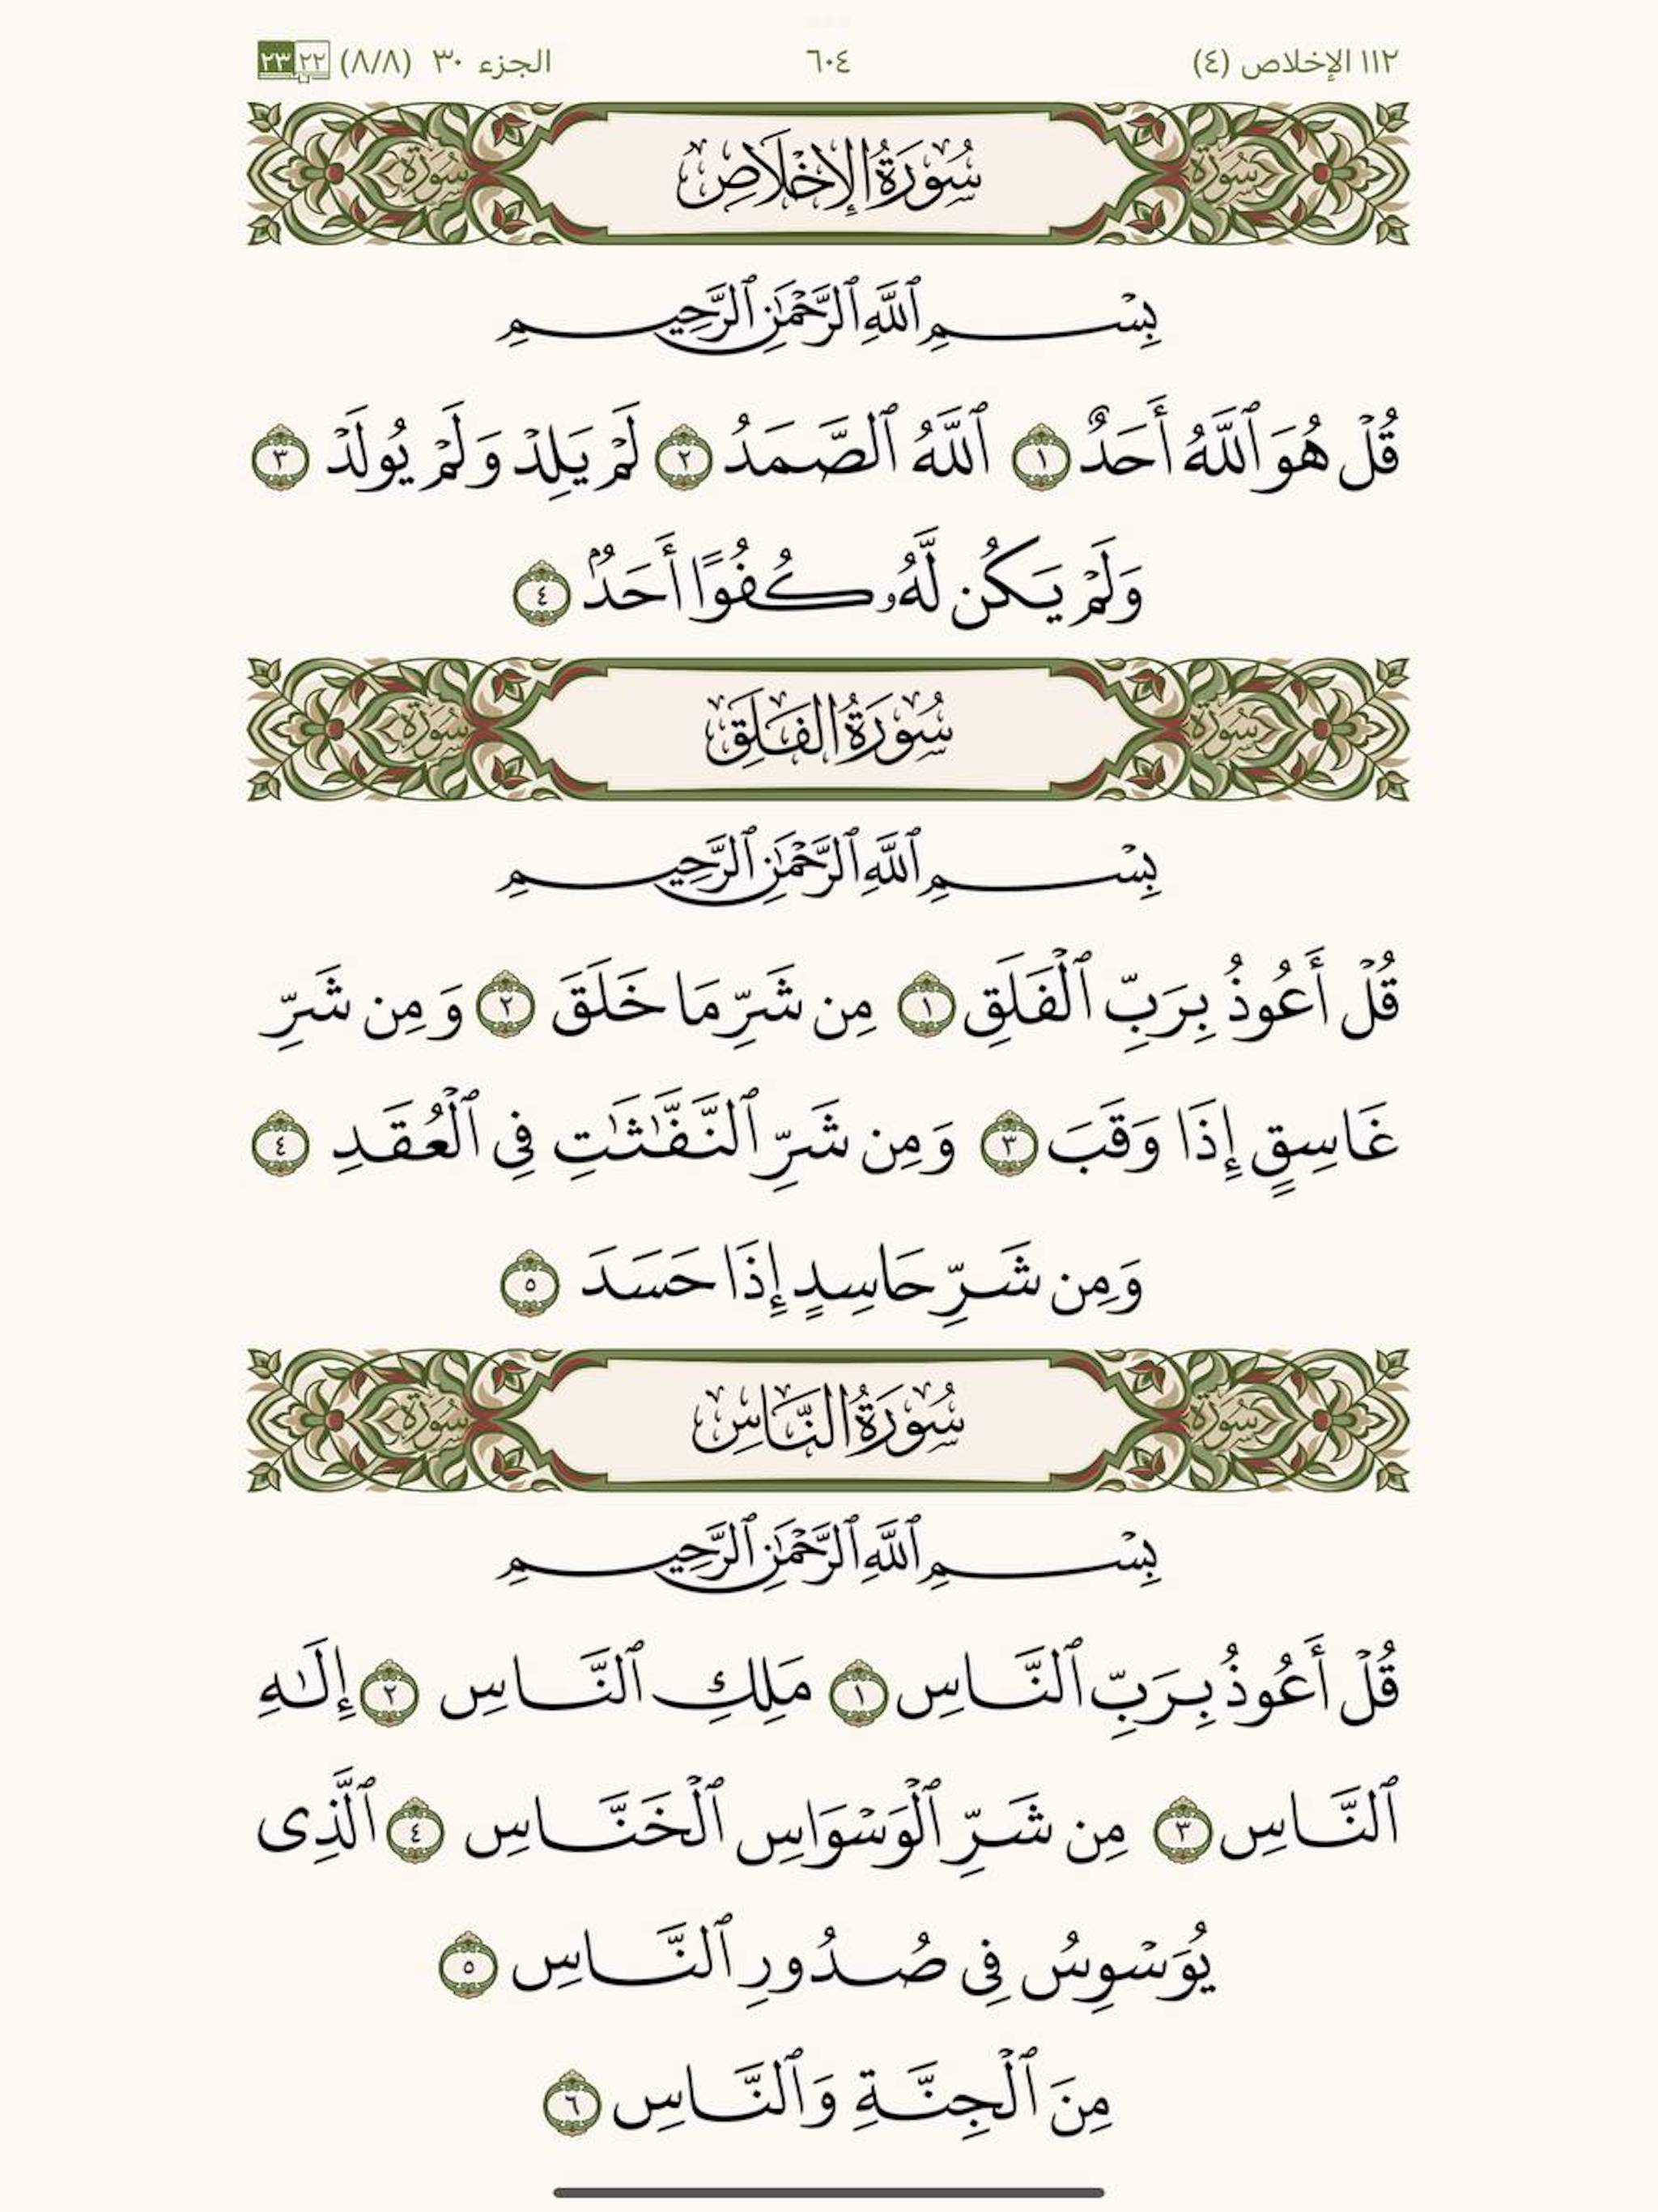 ١١٢ الإخلاص (٤) ٦٠٤ الجزء ٣٠ (٨/٨) ٢٢ ٢٣
سُورَةٌ سُورَةُ الإِخْلَاصِ سُورَةٌ
بِسْمِ ٱللَّهِ ٱلرَّحْمَٰنِ ٱلرَّحِيمِ
قُلْ هُوَ ٱللَّهُ أَحَدٌ ١ ٱللَّهُ ٱلصَّمَدُ ٢ لَمْ يَلِدْ وَلَمْ يُولَدْ ٣
وَلَمْ يَكُن لَّهُۥ كُفُوًا أَحَدٌۢ ٤
سُورَةٌ سُورَةُ الفَلَقِ سُورَةٌ
بِسْمِ ٱللَّهِ ٱلرَّحْمَٰنِ ٱلرَّحِيمِ
قُلْ أَعُوذُ بِرَبِّ ٱلْفَلَقِ ١ مِن شَرِّ مَا خَلَقَ ٢ وَمِن شَرِّ
غَاسِقٍ إِذَا وَقَبَ ٣ وَمِن شَرِّ ٱلنَّفَّٰثَٰتِ فِى ٱلْعُقَدِ ٤
وَمِن شَرِّ حَاسِدٍ إِذَا حَسَدَ ٥
سُورَةٌ سُورَةُ النَّاسِ سُورَةٌ
بِسْمِ ٱللَّهِ ٱلرَّحْمَٰنِ ٱلرَّحِيمِ
قُلْ أَعُوذُ بِرَبِّ ٱلنَّاسِ ١ مَلِكِ ٱلنَّاسِ ٢ إِلَٰهِ
ٱلنَّاسِ ٣ مِن شَرِّ ٱلْوَسْوَاسِ ٱلْخَنَّاسِ ٤ ٱلَّذِى
يُوَسْوِسُ فِى صُدُورِ ٱلنَّاسِ ٥
مِنَ ٱلْجِنَّةِ وَٱلنَّاسِ ٦